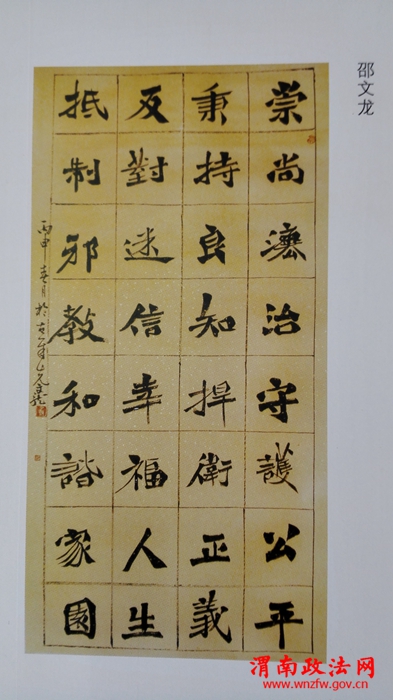 邵文龙
崇尚灋治守護公平
秉持良知捍衛正義
反對迷信幸福人生
抵制邪教和諧家園
丙申春月於
渭南政法网
www.wnzfw.gov.cn